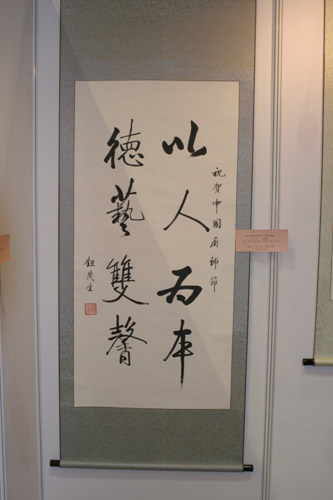 祝賀中國厨师節
以人为本
德藝雙馨
鈕茂生